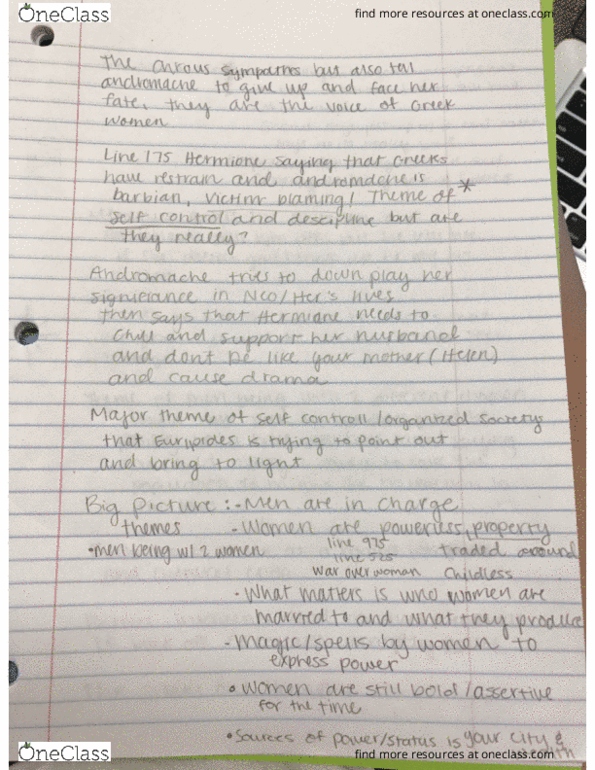 OneClass
find more resources at oneclass.com
The chrous sympaths but also tell
andromache to give up and face her
fate, they are the voice of Greek
women
Line 175 Hermione saying that Greeks
have restrain and andromdche is
barbian, victim blaming! Theme of *
self control and descipline but are
they really?
Andromache tries to down play her
significance in Neo/Her's lives
then says that Hermione needs to
chill and support her husband
and dont be like your mother (Helen)
and cause drama
Major theme of self controll/organized societys
that Euripides is trying to point out
and bring to light
Big Picture :- Men are in charge
themes - Women are powerless, property
•men being w/ 2 women line 975 traded around
line 525
war over woman childless
• What matters is who women are
married to and what they produce
- Magic/spells by women to
express power
• Women are still bold/assertive
for the time
• Sources of power/status is your city &
OneClass
find more resources at oneclass.com